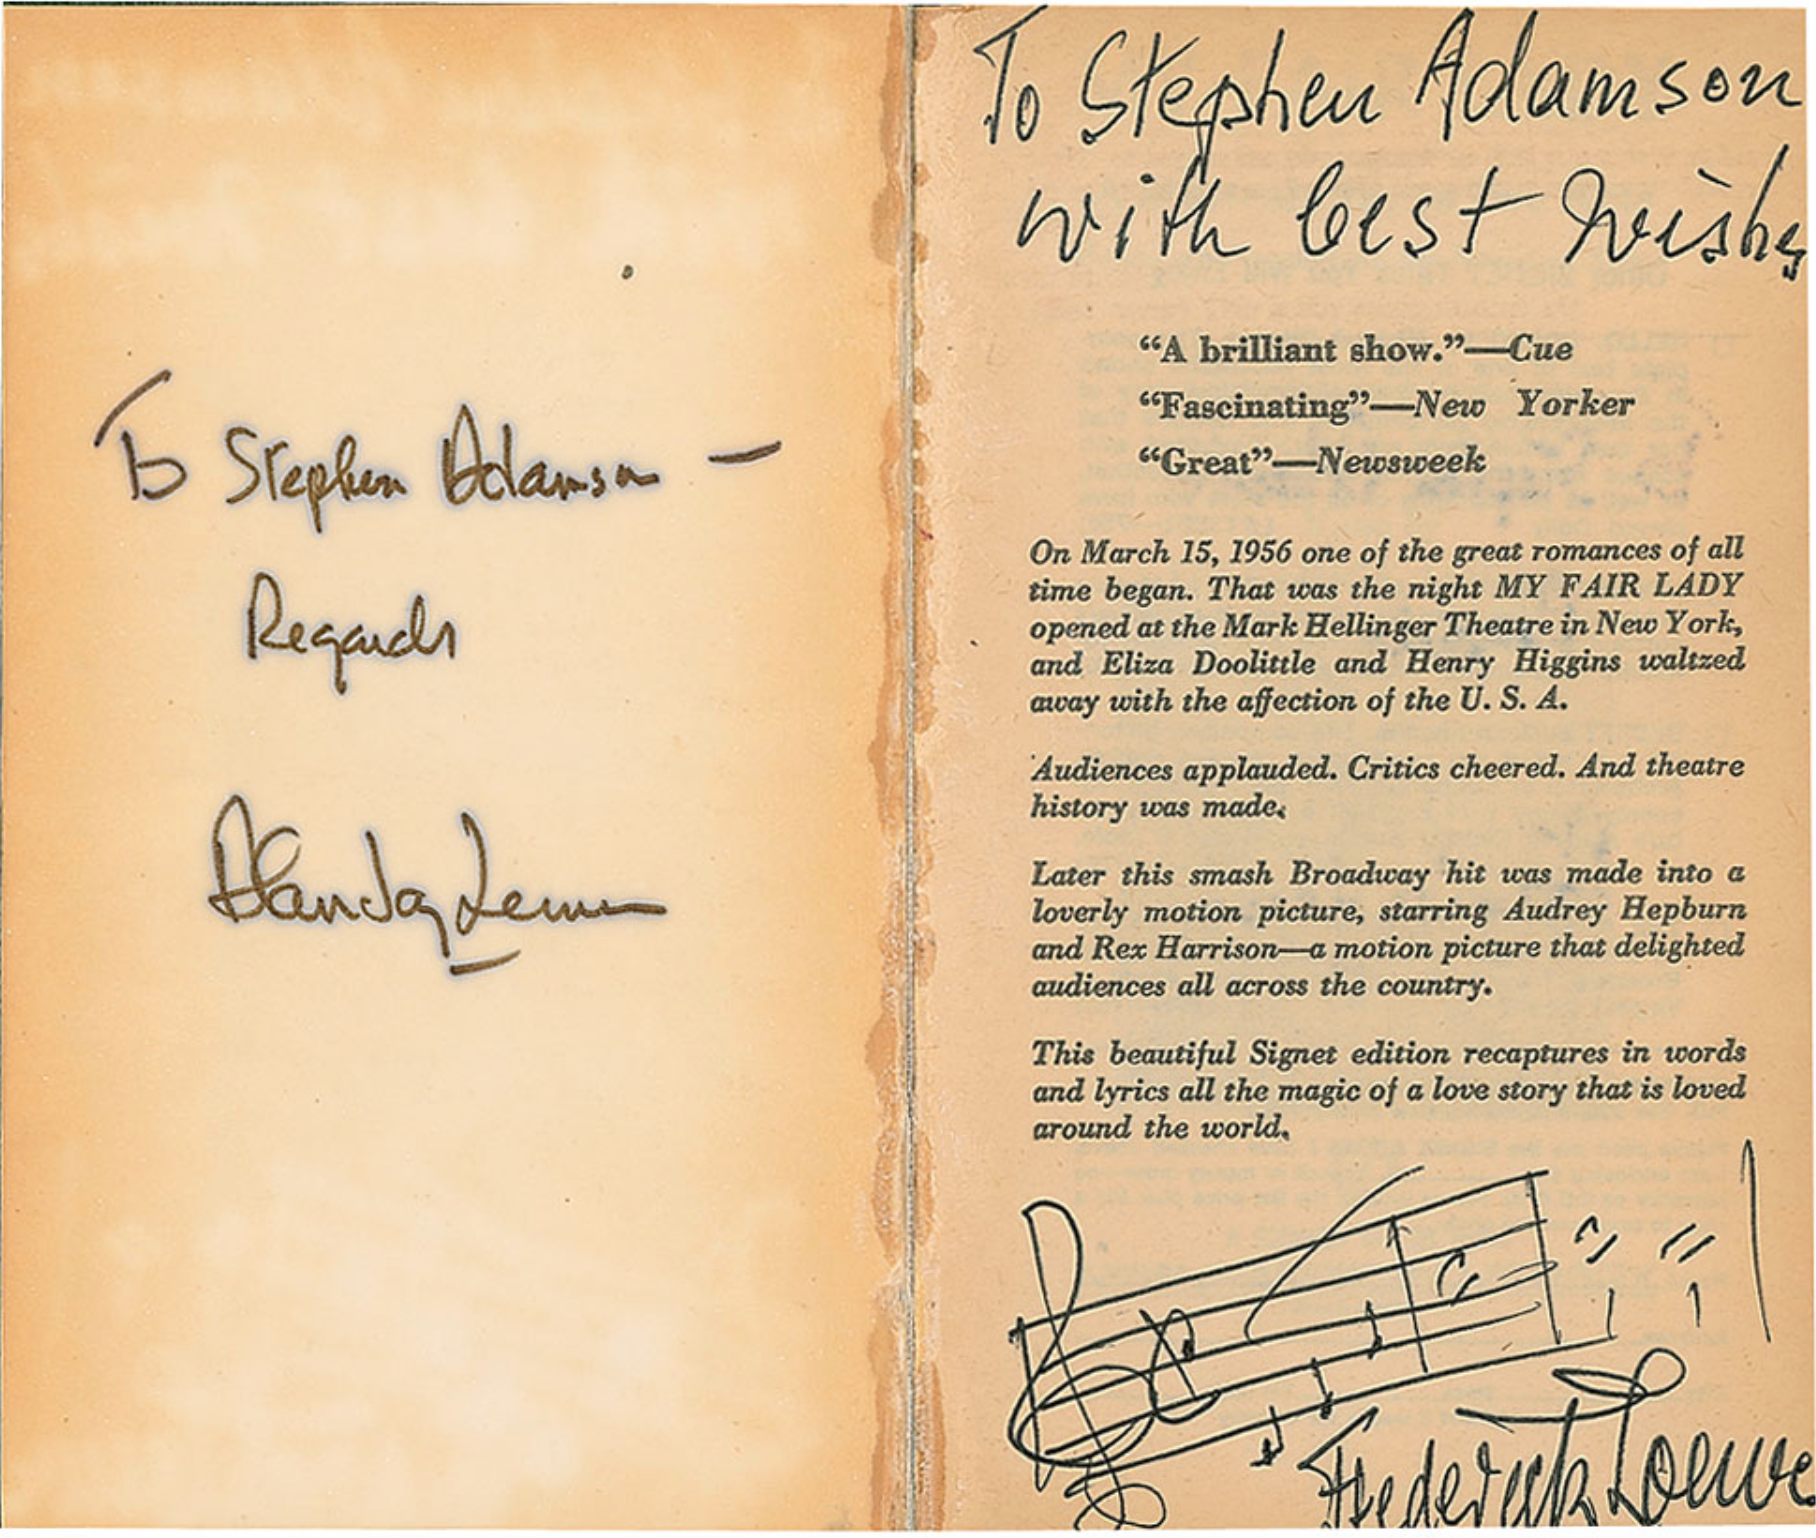 To Stephen Adamson —
Regards
Alan Jay Lerner
To Stephen Adamson
with best wishes
“A brilliant show.”—Cue
“Fascinating”—New Yorker
“Great”—Newsweek
On March 15, 1956 one of the great romances of all
time began. That was the night MY FAIR LADY
opened at the Mark Hellinger Theatre in New York,
and Eliza Doolittle and Henry Higgins waltzed
away with the affection of the U. S. A.
Audiences applauded. Critics cheered. And theatre
history was made.
Later this smash Broadway hit was made into a
loverly motion picture, starring Audrey Hepburn
and Rex Harrison—a motion picture that delighted
audiences all across the country.
This beautiful Signet edition recaptures in words
and lyrics all the magic of a love story that is loved
around the world.
Frederick Loewe